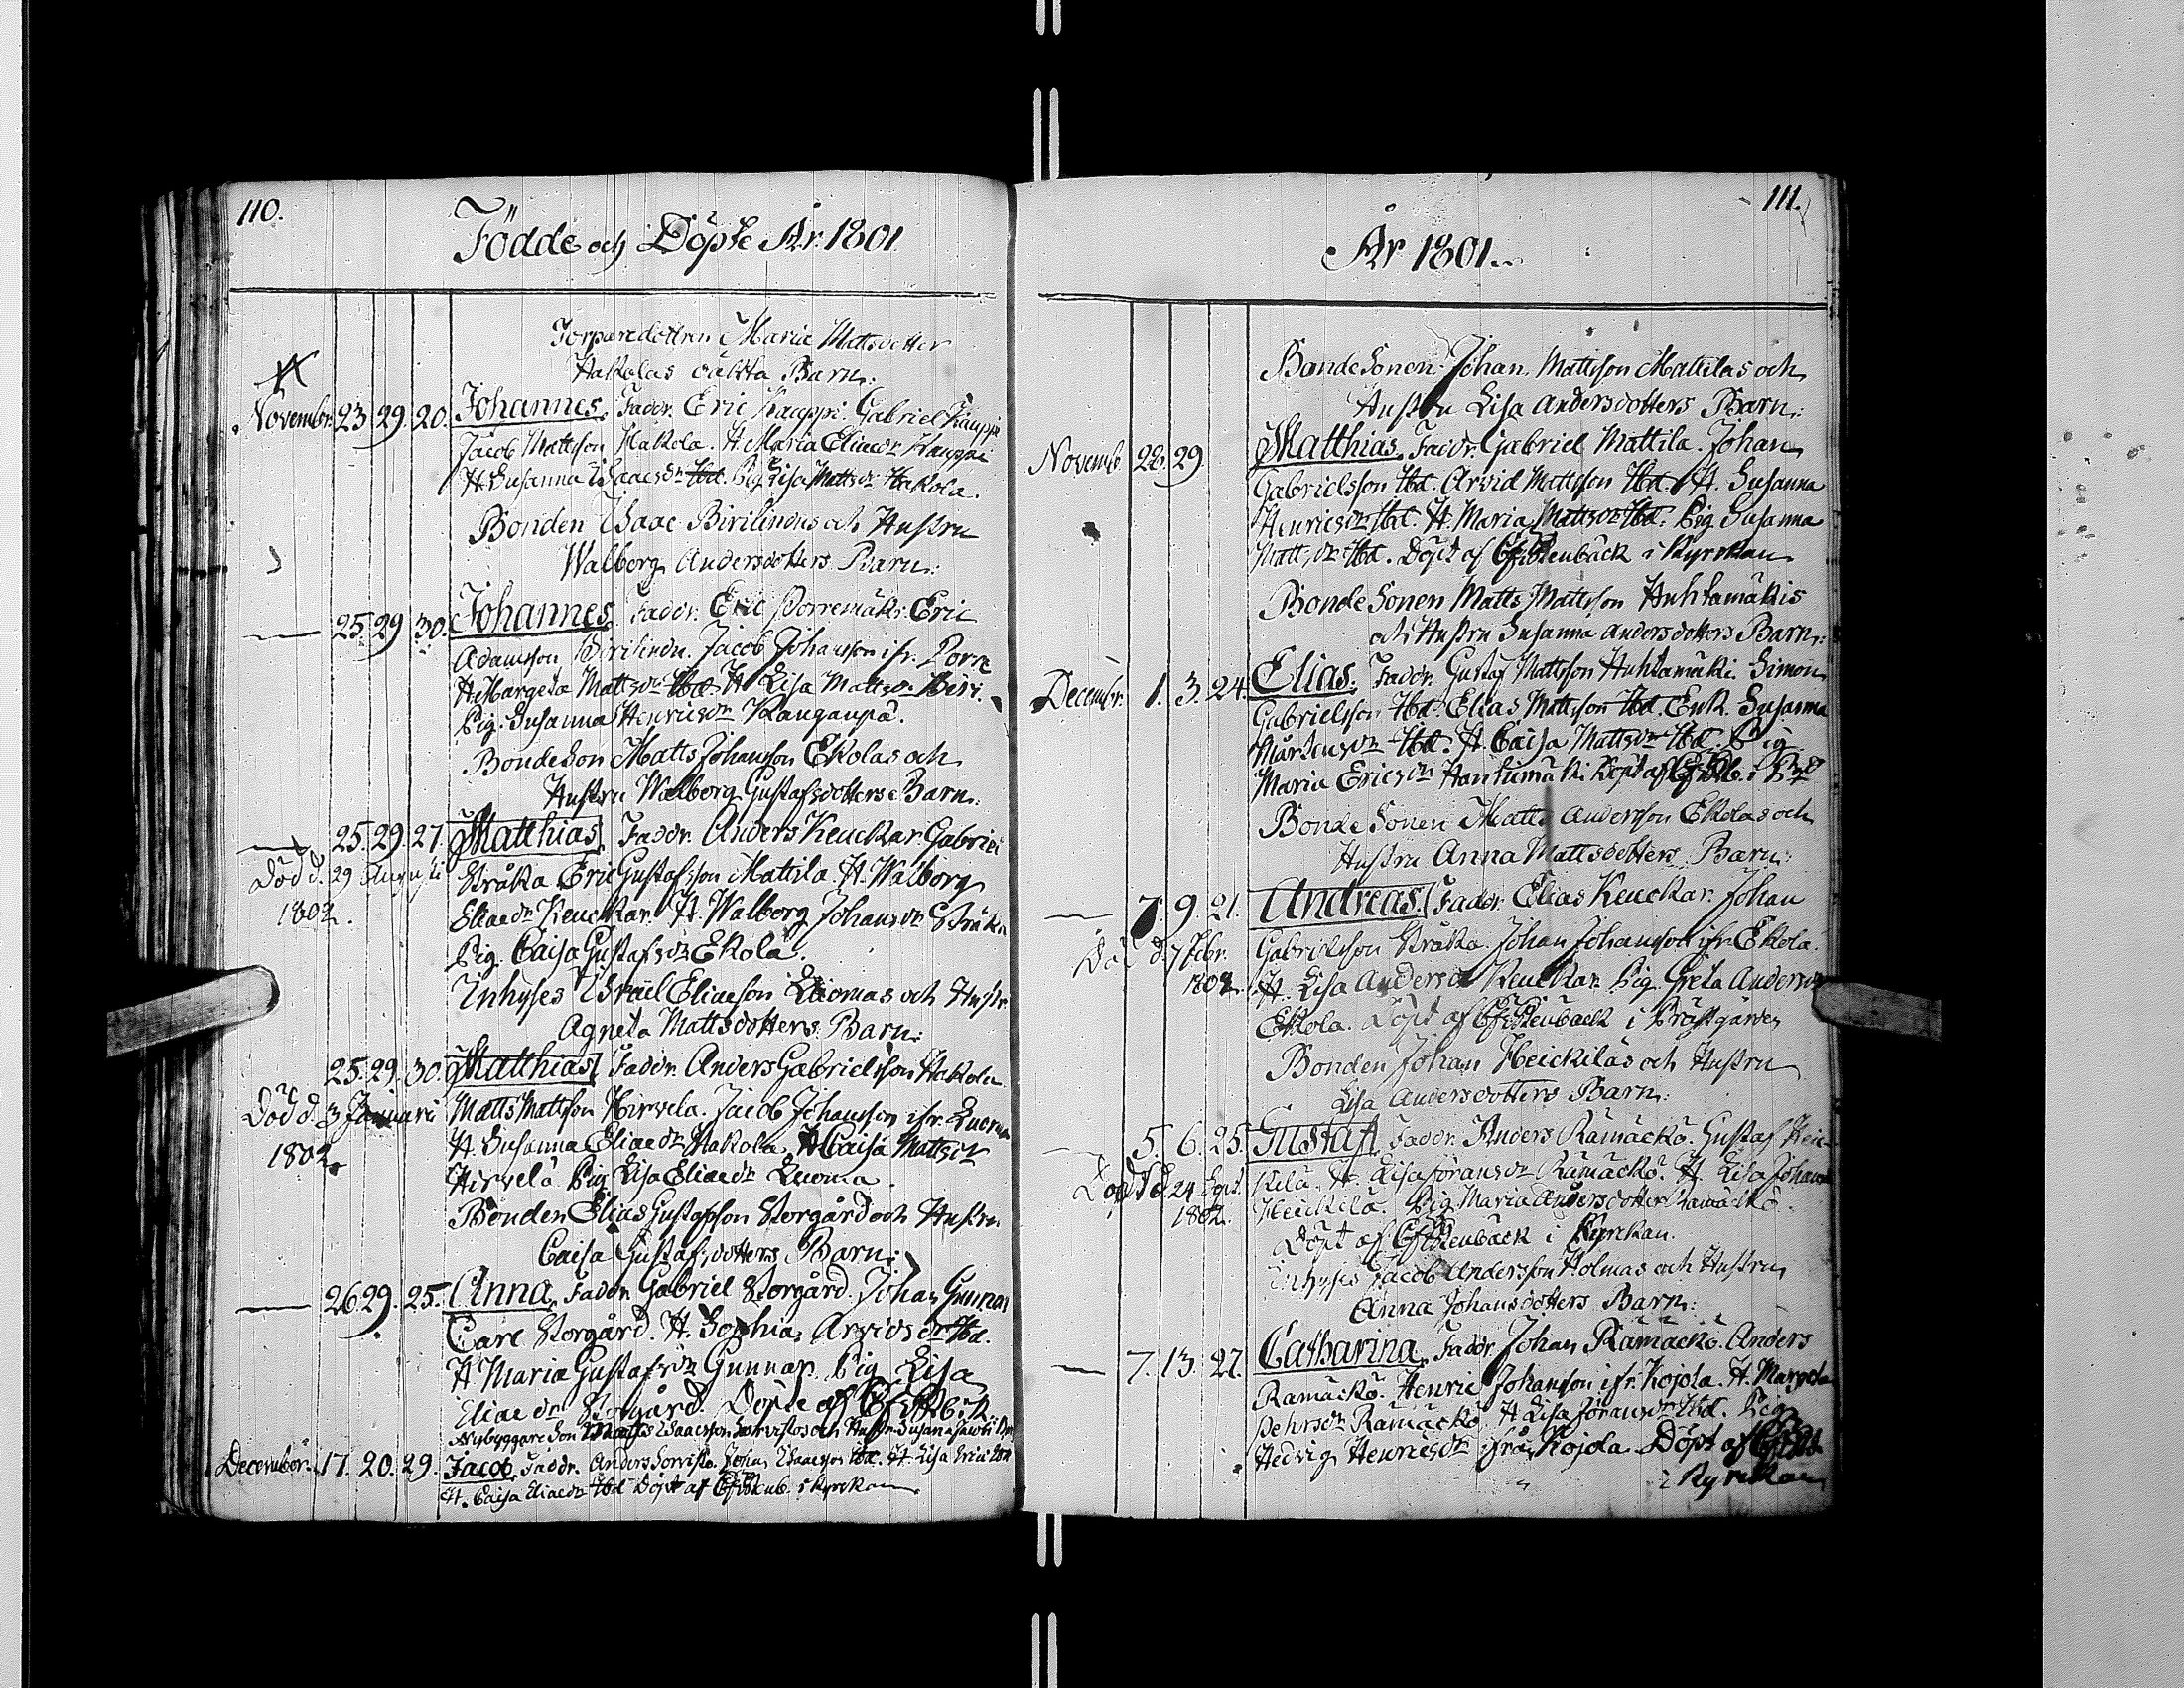 110.
Födde och Döpte År 1801
Torparedottren Maria Mattsdotter
Hakolas oäkta Barn:
Novembr. 23 29. 20. Johannes. Faddr. Eric Kauppi. Gabriel Kauppi
Jacob Mattsson Hakola. H. Maria Eliaedr Kauppi
H. Susanna Isaacsdr Ibd. Pig. Lisa Mattsdr Hakola.
Bonden Isaac Birilindus och Hustru
Walborg Andersdotters Barn:
25. 29 30. Johannes. Faddr. Eric Eric
Adamsson Jacob Johansson ifr. Porre
H. Margeta Mattsdr Ibd. H. Lisa Mattsdr Biri.
Pig. Susanna Henricsdr Kangaspä.
BondeSon Matts Johansson Ekolas och
Hustru Walborg Gustafsdotters Barn:
25. 29. 27. Matthias. Faddr. Anders Keuckar. Gabriel
Död d. 29 Augusti
1802.
Stråka Eric Gustafsson Mattila. H. Walborg
Eliaedr Keuckar. H. Walborg Johansdr Stråka
Pig. Caisa Gustafsdr Ekola.
Inhyses Israel Eliaeson Luomas och Hustr.
Agneta Mattsdotters Barn:
25. 29. 30. Matthias. Faddr. Anders Gabrielsson Hakola
Död d. 3 Januarii
1802.
Matts Mattsson Hirvela. Jacob Johansson ifr. Luoma
H. Susanna Eliaedr Hakola. H. Caisa Mattsdr
Hirvelä Pig. Lisa Eliaedr Luoma.
Bonden Elias Gustafsson Storgård och Hustru
Caisa Gustafsdotters Barn:
26 29. 25. Anna. Faddr. Gabriel Storgård. Johan Gunnar
Carl Storgård. H. Sophia Arvidsdr Ibd.
H. Maria Gustafsdr Gunnar. Pig. Lisa
Eliaedr Storgård. Döpte af
Nybyggare Son Matts Isaacsson och Hustr. Susanna
December. 17. 20. 29. Jacob. Faddr. Anders Johan Isaacsson Ibd. H. Lisa
H. Caisa Eliaedr Ibd Döpt af i Kyrckan
111.
År 1801.
BondeSonen Johan Mattsson Mattilas och
Hustru Lisa Andersdotters Barn:
Novemb. 28. 29. Matthias. Faddr. Gabriel Mattila. Johan
Gabrielsson Ibd. Arvid Mattsson Ibd. H. Susanna
Henricsdr Ibd. H. Maria Mattsdr Ibd. Pig. Susanna
Mattsdr Ibd. Döpt af i Kyrckan
BondeSonen Matts Mattsson Huhtamäkis
och Hustru Susanna Andersdotters Barn:
Decembr. 1. 3. 24. Elias. Faddr. Gustaf Mattsson Huhtamäki. Simon
Gabrielsson Ibd. Elias Mattsson Ibd. Enk. Susanna
Mårtensdr Ibd. H. Caisa Mattsdr Ibd. Pig
Maria Ericsdr Döpt af
BondeSonen Matts Andersson Ekolas och
Hustru Anna Mattsdotters Barn:
7. 9. 21. Andreas. Faddr. Elias Keuckar. Johan
Död d. 7 Febr.
1802.
Gabrielsson Stråka. Johan Johansson ifr. Ekola.
H. Lisa Andersdr Keuckar. Pig. Greta Andersdr
Ekola. Döpt af i Prästgården
Bonden Johan Heickiläs och Hustru
Lisa Andersdotters Barn:
5. 6. 25. Gustaf. Faddr. Anders Ramäckö. Gustaf Heic-
Död d. 24 Sept.
1802.
kilä. H. Lisa Joransdr Ramäckö. H. Lisa Johansdr
Heickilä. Pig. Maria Andersdotter Ramäckö.
Döpt af i Kyrckan.
Inhyses Jacob Andersson Holmas och Hustru
Anna Johansdotters Barn:
7. 13. 27. Catharina. Faddr. Johan Ramäckö. Anders
Ramäckö. Henric Johansson ifr. Kojola. H. Margeta
Pehrsdr Ramäckö. H. Lisa Joransdr Ibd. Pig.
Hedvig Henricsdr ifrån Kojola. Döpt af
i Kyrckan